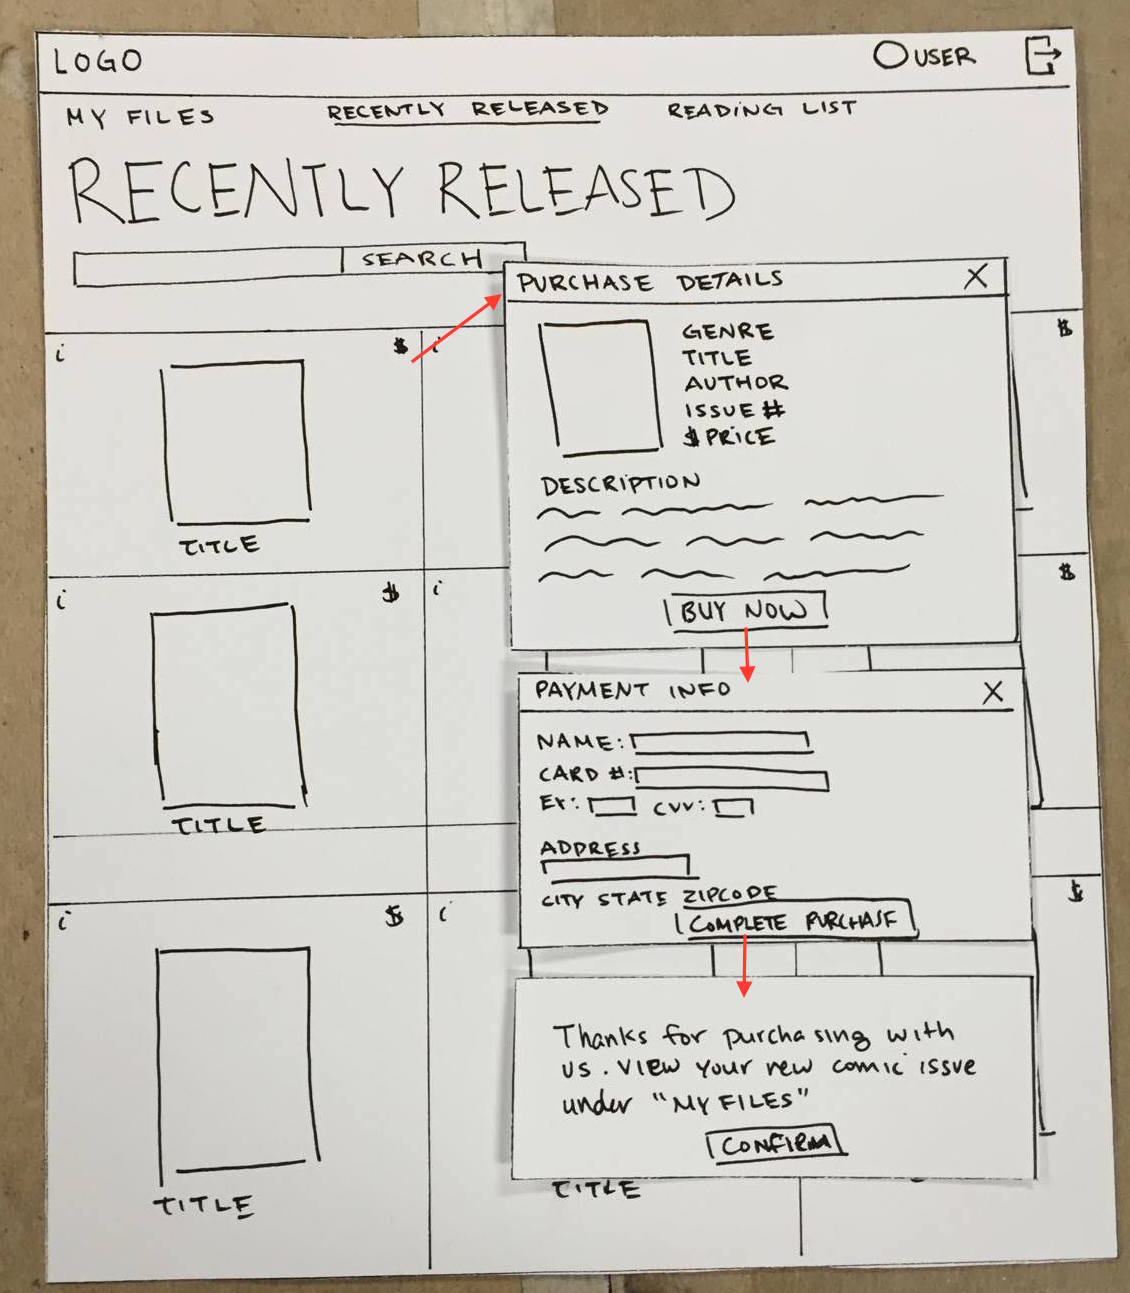 LOGO
USER
MY FILES RECENTLY RELEASED READING LIST
RECENTLY RELEASED
SEARCH
i $ i $
TITLE
i $ i $
TITLE
i $ i $
TITLE
TITLE
PURCHASE DETAILS X
GENRE
TITLE
AUTHOR
ISSUE #
$ PRICE
DESCRIPTION
BUY NOW
PAYMENT INFO X
NAME:
CARD #:
EX: CVV:
ADDRESS
CITY STATE ZIPCODE
COMPLETE PURCHASE
Thanks for purchasing with
us. VIEW your new comic issue
under "MY FILES"
CONFIRM